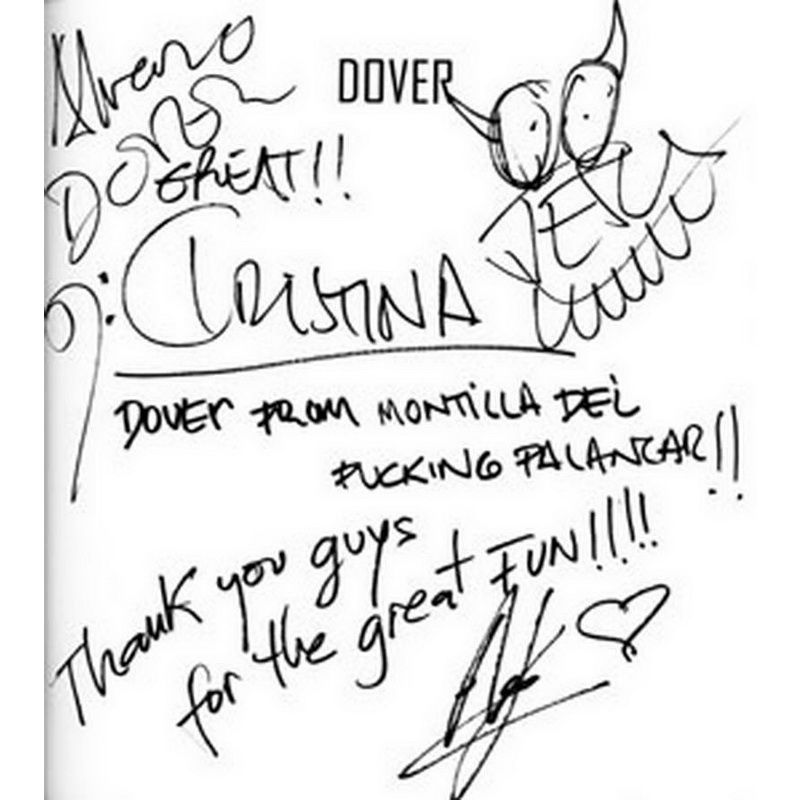 Alvaro
DOVER
GREAT!!
CRISTINA
JESUS
DOVER FROM MONTILLA DEL
FUCKING PALANCAR!!
Thank you guys
for the great FUN!!!!